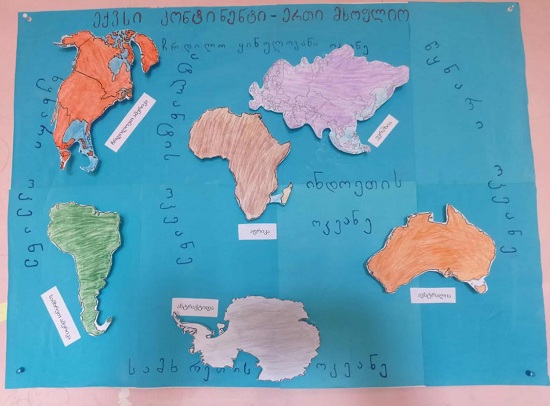 ექვსი კონტინენტი - ერთი მსოფლიო
ჩრდილო ყინულოვანი ოკეანე
წყნარი
ოკეანე
ატლანტის
ოკეანე
წყნარი
ოკეანე
ჩრდილოეთ ამერიკა
ევრაზია
აფრიკა
ინდოეთის
ოკეანე
სამხრეთ ამერიკა
ავსტრალია
ანტარქტიდა
სამხრეთის ოკეანე